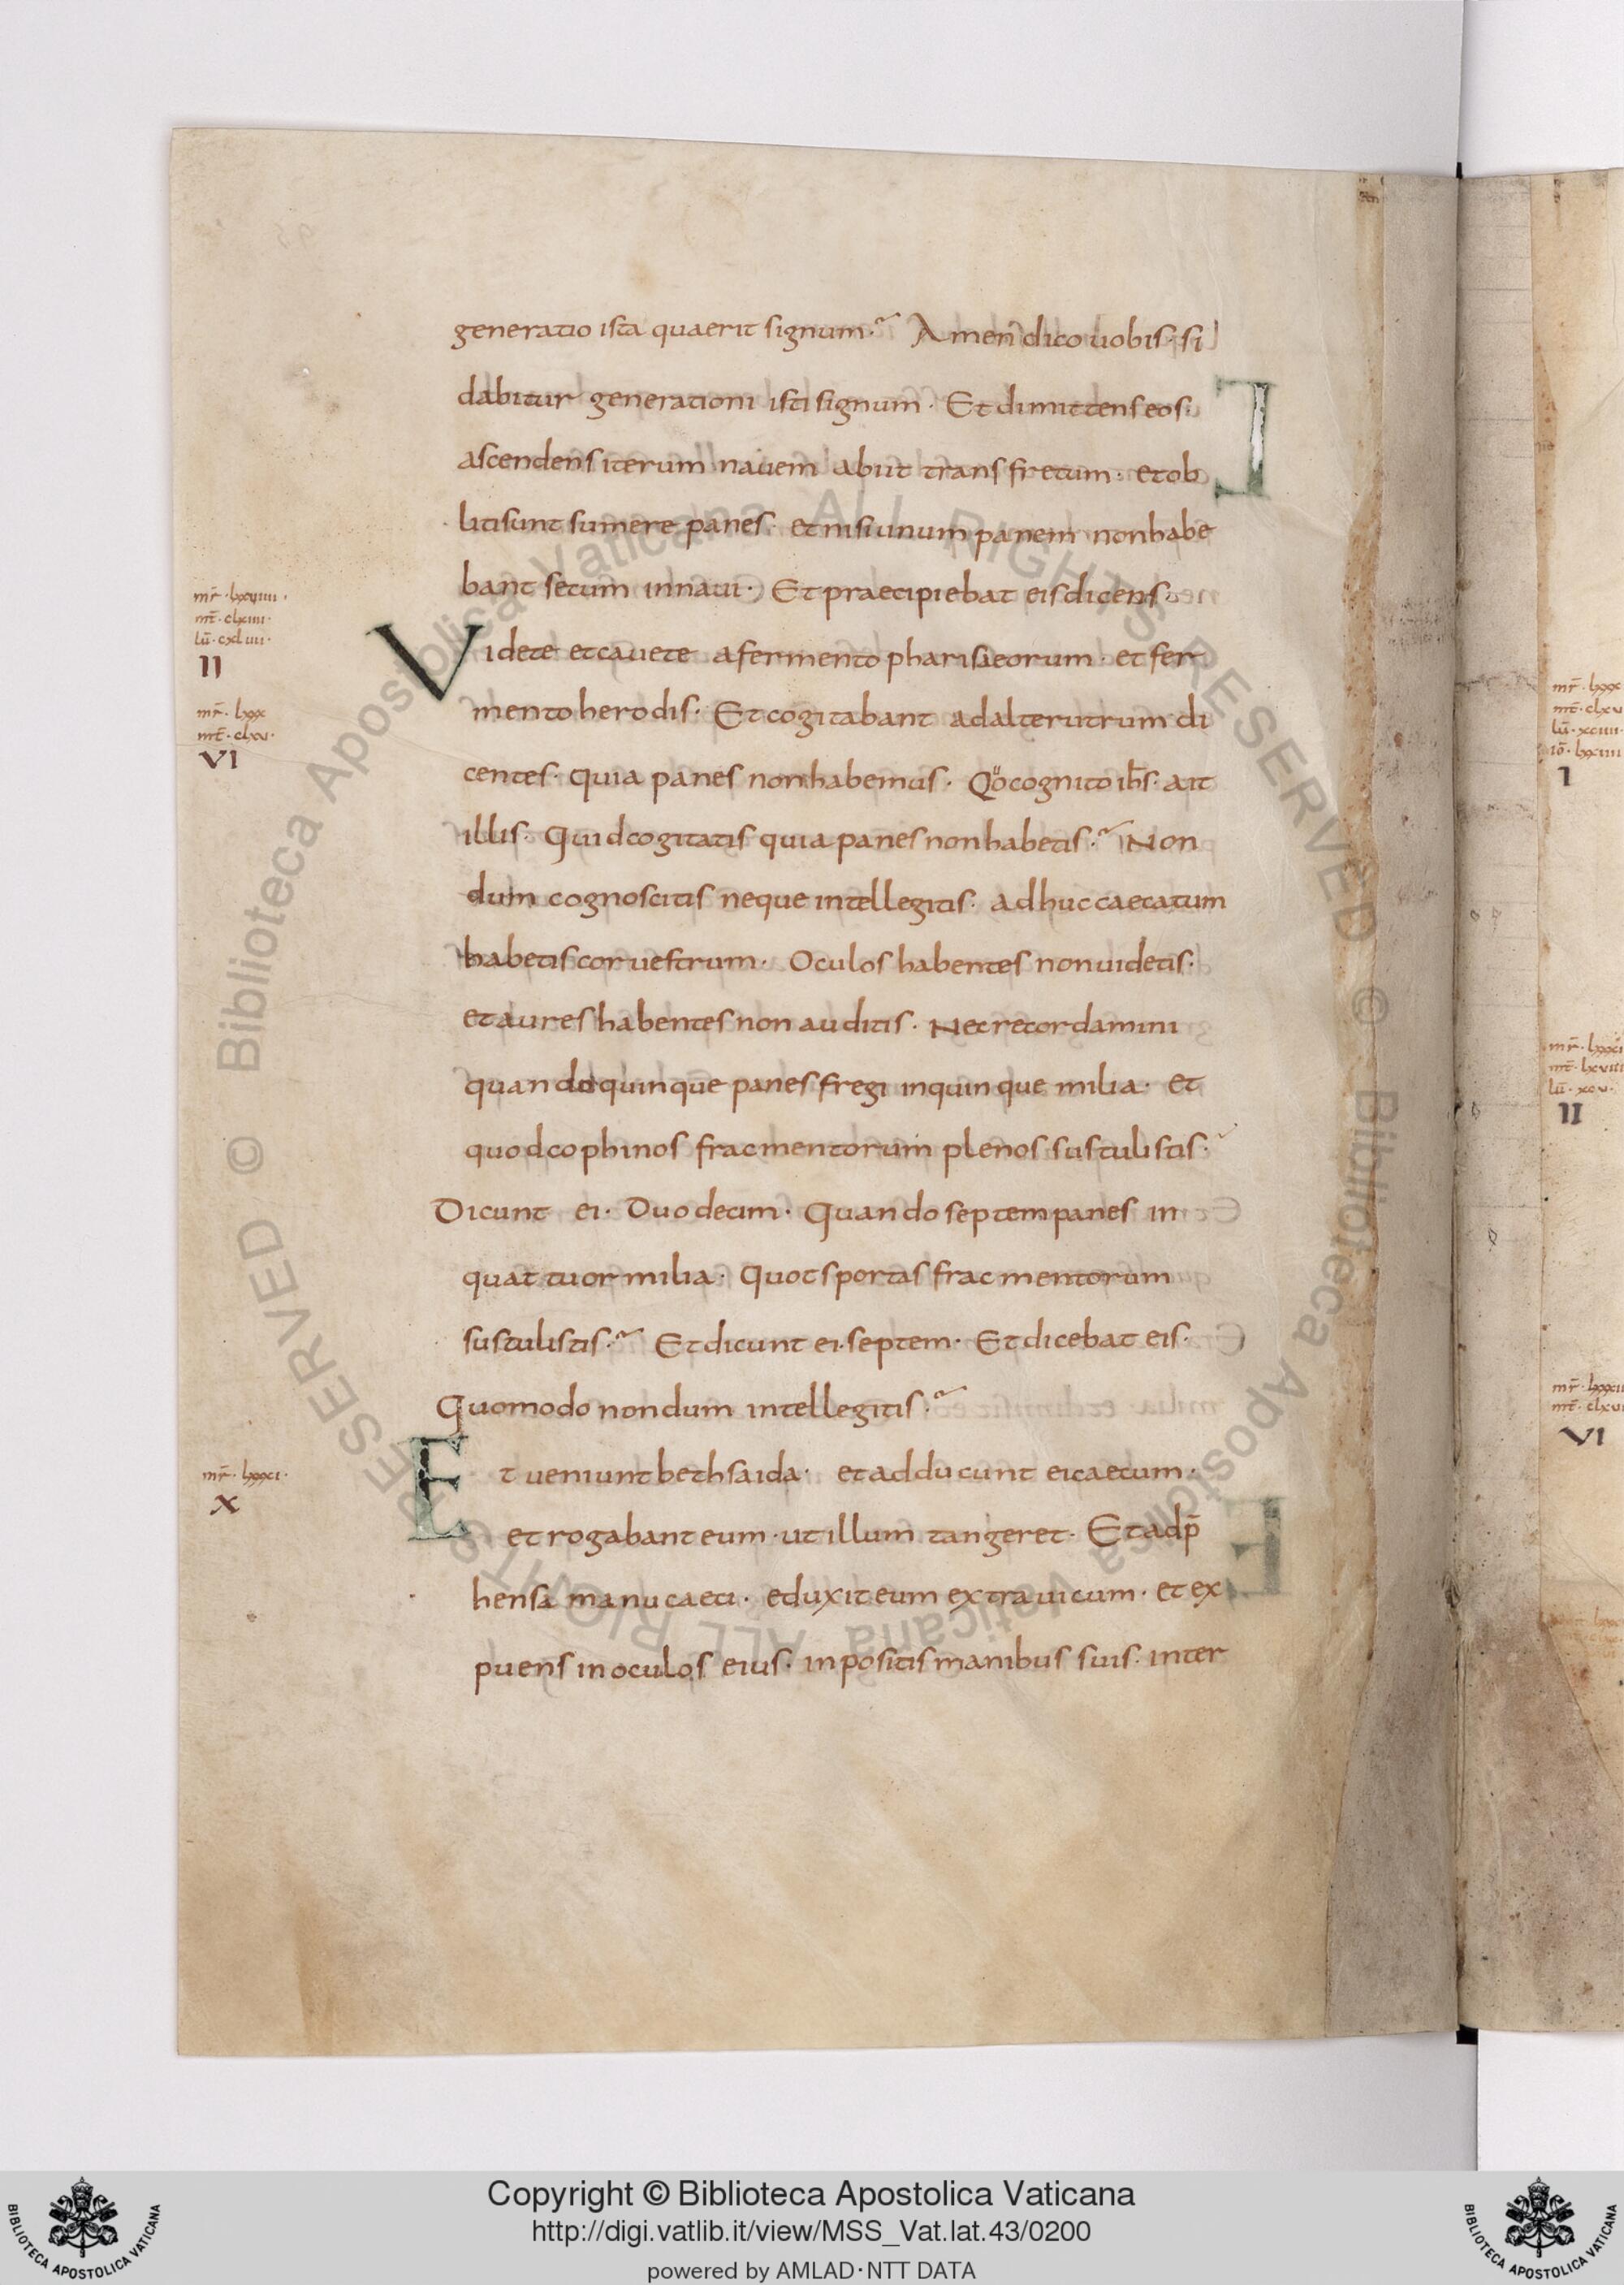 generatio ista quaerit signum· Amen dico uobis· si
dabitur generationi isti signum· Et dimittens eos·
ascendens iterum nauem abiit trans fretum· et ob
liti sunt sumere panes· et nisi unum panem non habe
bant secum in naui· Et praecipiebat eis dicens·
mr̄· lxxuiiii·
mt̄· clxiiii·
lū· cxliiii·
II
Videte et cauete a fermento pharisaeorum· et fer
mr̄· lxxx
mt̄· clxu·
VI
mento herodis· Et cogitabant ad alterutrum di
centes· quia panes non habemus· Qӧ cognito ih̄s· ait
illis· Quid cogitatis quia panes non habetis· Non
dum cognoscitis neque intellegitis· adhuc caecatum
habetis cor uestrum· Oculos habentes non uidetis·
et aures habentes non auditis· Nec recordamini
quando quinque panes fregi in quinque milia· et
quod cophinos fracmentorum plenos sustulistis·
Dicunt ei· Duodecim· Quando septem panes in
quattuor milia· Quot sportas fracmentorum
sustulistis· Et dicunt ei· septem· Et dicebat eis·
Quomodo nondum intellegitis·
mr̄· lxxxi·
X
Et ueniunt bethsaida· et adducunt ei caecum·
et rogabant eum· ut illum tangeret· Et adp̄
hensa manu caeci· eduxit eum extra uicum· et ex
puens in oculos eius· inpositis manibus suis· inter
mr̄· lxxx
mt̄· clxu
lū· xciiii·
I
mt̄· lxuiii
lū· xcu·
II
mt̄· clxui
VI
© Biblioteca Apostolica Vaticana ALL RIGHTS RESERVED © Biblioteca Apostolica Vaticana ALL RIGHTS RESERVED
Copyright © Biblioteca Apostolica Vaticana
http://digi.vatlib.it/view/MSS_Vat.lat.43/0200
powered by AMLAD·NTT DATA
BIBLIOTECA APOSTOLICA VATICANA
BIBLIOTECA APOSTOLICA VATICANA